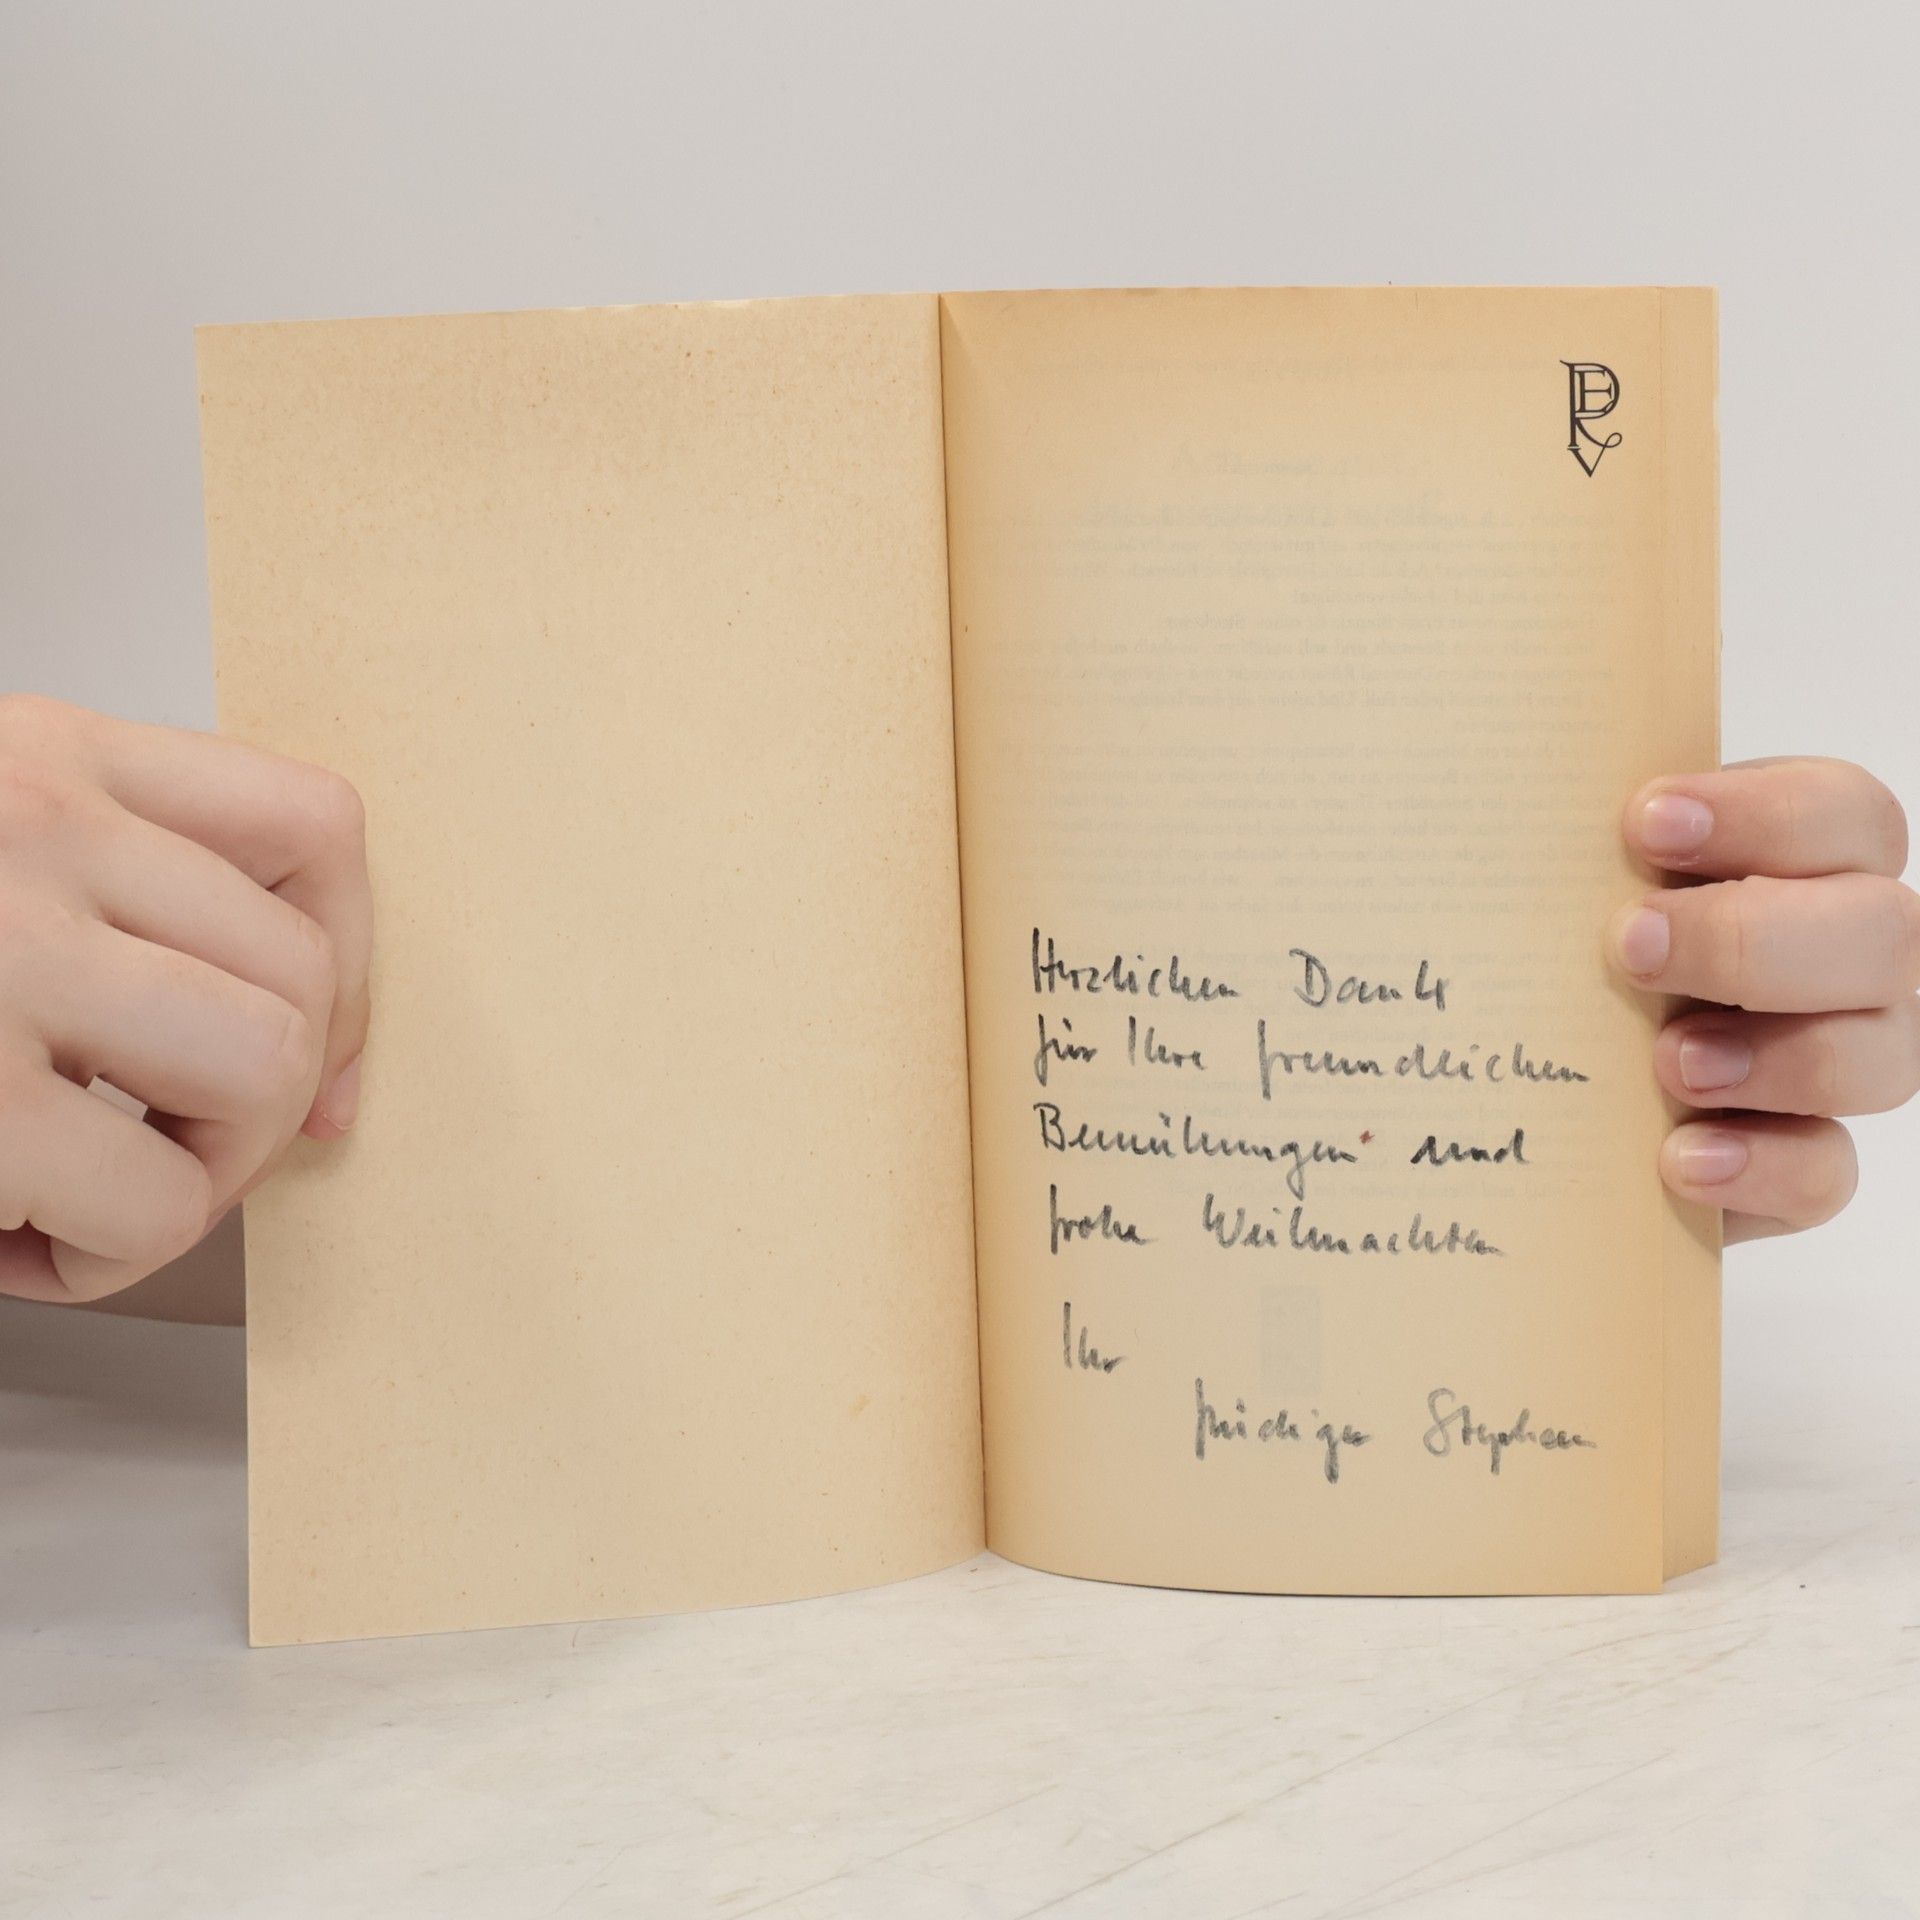 Herzlichen Dank
für Ihre freundlichen
Bemühungen und
frohe Weihnachten
Ihr
Rüdiger Stephan